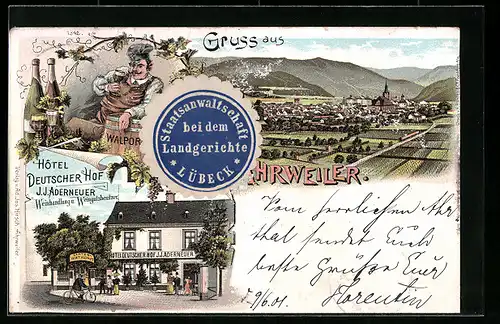 Gruss aus
AHRWEILER.
WALPOR
Staatsanwaltschaft
bei dem
Landgerichte
LÜBECK
HÔTEL
DEUTSCHER HOF
J.J. ADERNEUER
Weinhandlung u. Weingutsbesitzer
HOTEL DEUTSCHER HOF J.J. ADERNEUER
Vom herrlichen Ahr-
thal sendet Euch
beste Grüße Euer
Florentin
d. 9/6.01.